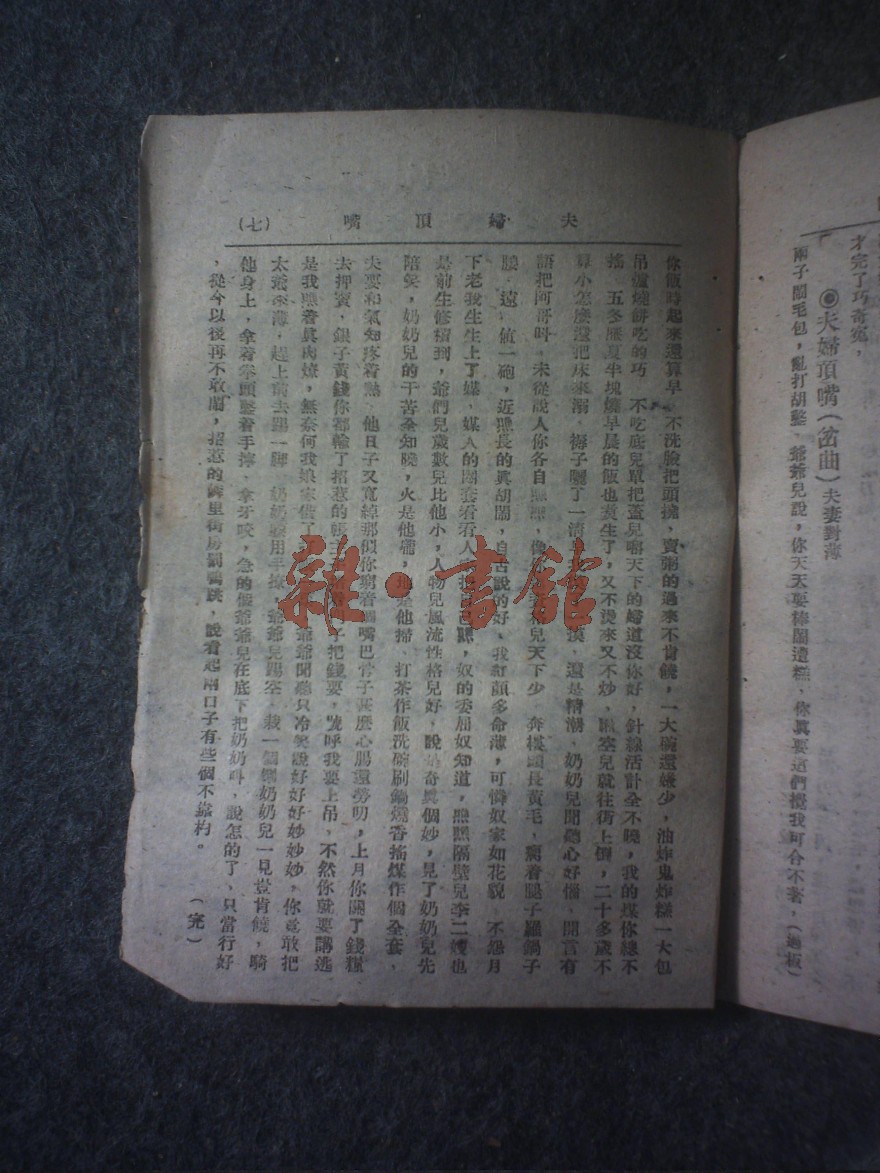 才完了巧奇冤，
◎夫婦頂嘴（岔曲）夫妻對薄
兩子鬧毛包，亂打胡鑿、爺爺兒說，你天天要棒鬧遭糕、你眞要這們攪我可合不著，（過板）
夫婦頂嘴
（七）
你飯時起來還算早、不洗臉把頭撓，賣粥的過來不肯饒，一大碗還嫌少，油炸鬼炸糕一大包
吊爐燒餅吃的巧、不吃底兒單把蓋兒嚼天下的婦道沒你好，針線活計全不曉，我的煤你總不
搖、五冬歷夏半塊燒早晨的飯也煑生了，又不燙來又不炒，瞅空兒就往街上僄，二十多歲不
算小怎麼還把床來溺、褥子曬了一 還是精潮、奶奶兒聞聽心好惱、開言有
語把阿哥叫、未從說人你各自照照、像你 兒天下少、奔樓頭長黃毛，羅鍋子
腰、遠 一砲，近瞧長的眞胡鬧，自古說的好、我紅顏多命薄，可憐奴家如花貌、不怨月
下老我生生上了媒、媒人的圈套看看人 瞧，奴的委屈奴知道，照照隔壁兒李二嫂也
是前生修積到，爺們兒歲數兒比他小，人物兒風流性格兒好、說 奇眞個妙，見了奶奶兒先
陪笑，奶奶兒的干苦全知曉，火是他攏，地是他掃、打茶作飯洗碗刷鍋燒香搖煤作個全套，
夫妻和氣知疼着熱、他日子又寬綽那似你窮着 嘴巴骨子甚麽心腸還勞叨，上月你關了錢糧
去押寶，銀子黃錢你都輸了招惹的帳主 把錢要，號呼我要上吊、不然你就要講逃
是我 着眞肉燎，無奈何我娘家借了 爺爺聞聽只冷笑說好好好妙妙妙、你竟敢把
太爺來薄，趕上前去踢一脚、奶奶 用手撩，爺爺兒踢空、栽一個 奶奶兒一見豈肯饒，騎
他身上，拿着拳頭鑿着手擰、拿牙咬，急的 爺爺兒在底下把奶奶叫、說怎的了、只當行好
、從今以後再不敢鬧，招惹的鄰里街房 跳，說看起兩口子有些個不靠杓。 （完）
雜·書舘